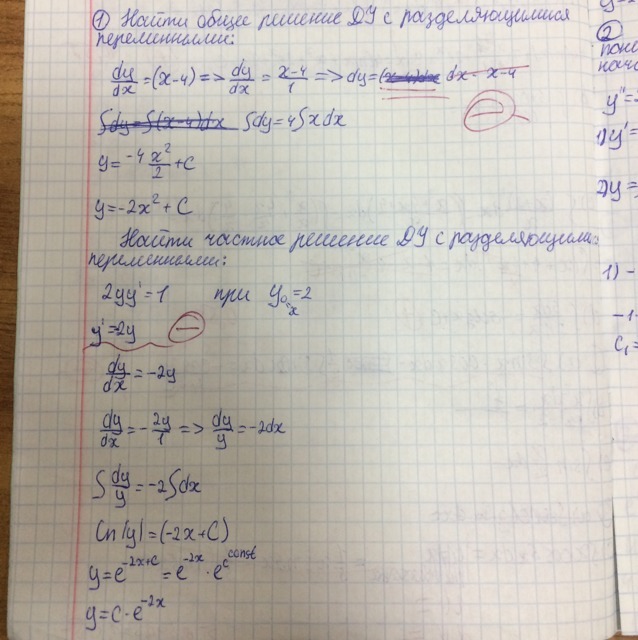 ① Найти общее решение ДУ с разделяющимися
переменными:
dy/dx = (x-4) => dy/dx = x-4/1 => dy= (x-4)dx dx · x-4
∫dy = ∫(x-4)dx ∫dy = 4∫x dx
y = -4 x²/2 + C
y = -2x² + C
Найти частное решение ДУ с разделяющимися
переменными:
2yy' = 1 при y₀ = 2
x
y' = 2y
dy/dx = -2y
dy/dx = - 2y/1 => dy/y = -2dx
∫ dy/y = -2∫dx
ln|y| = (-2x+C)
y = e^-2x+c = e^-2x · e^c const
y = C · e^-2x
②
y''=
1) y'=
2) y=
1) -
-1
C₁=